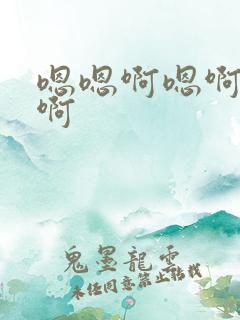 嗯嗯啊嗯啊
啊
鬼墨龍雲
未经同意禁止转载